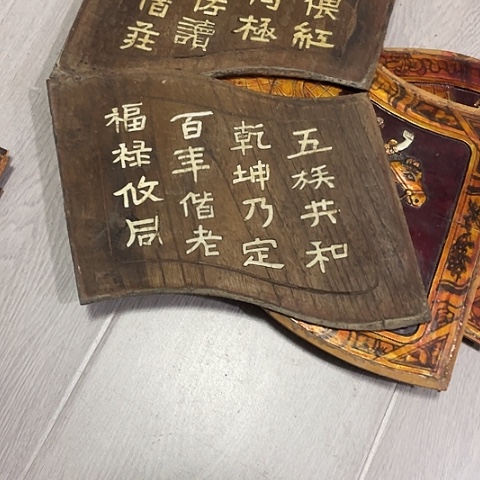 紅
極
讀
莊
五族共和
乾坤乃定
百年偕老
福禄攸同